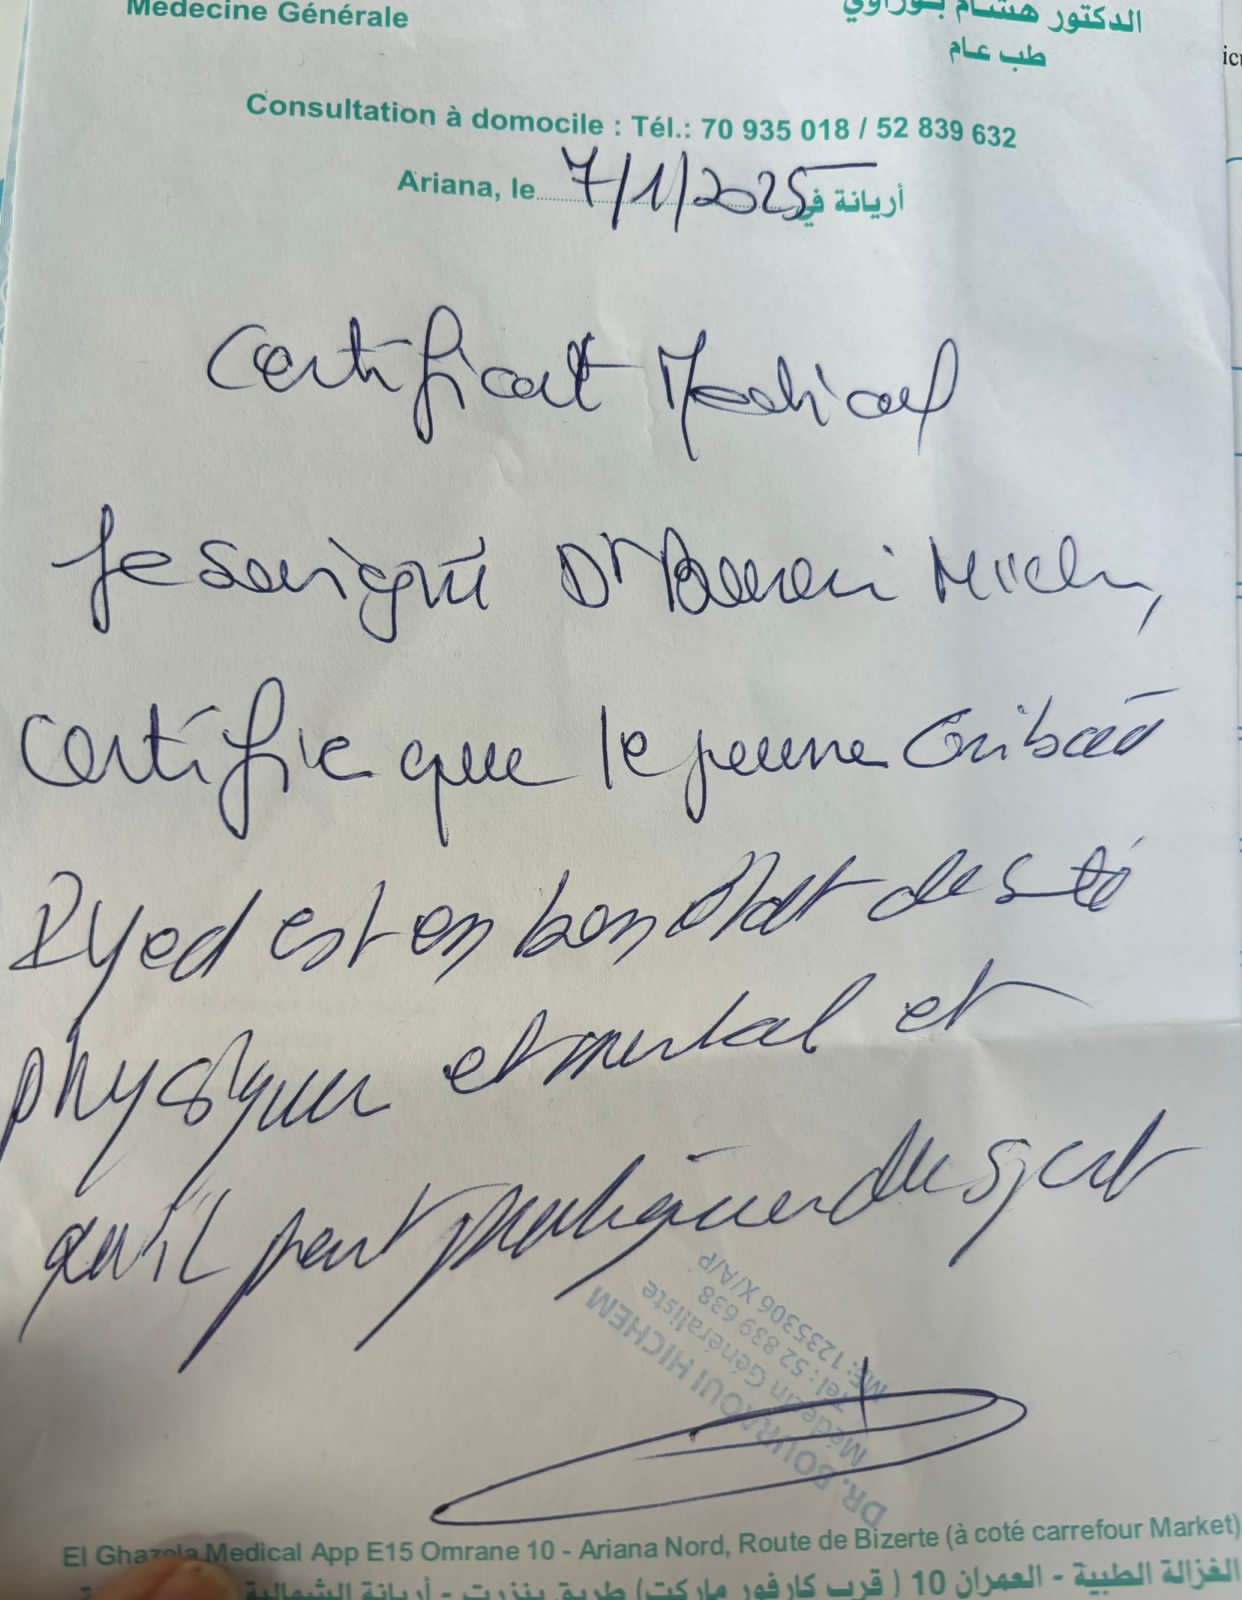 Médecine Générale
الدكتور هشام بوراوي
طب عام
Consultation à domocile : Tél.: 70 935 018 / 52 839 632
Ariana, le 7/1/2025 أريانة في
Certificat Medical
Je soussigné Dr Bouraoui Hichem,
certifie que le jeune
Ryed est en bon état de santé
physique et mental et
qu'il peut pratiquer du sport
DR. BOURAOUI HICHEM
Médecin Généraliste
Tel : 52 839 638
MF: 1235306 X/A/P
El Ghazela Medical App E15 Omrane 10 - Ariana Nord, Route de Bizerte (à coté carrefour Market)
الغزالة الطبية - العمران 10 ( قرب كارفور ماركت) طريق بنزرت - أريانة الشمالية